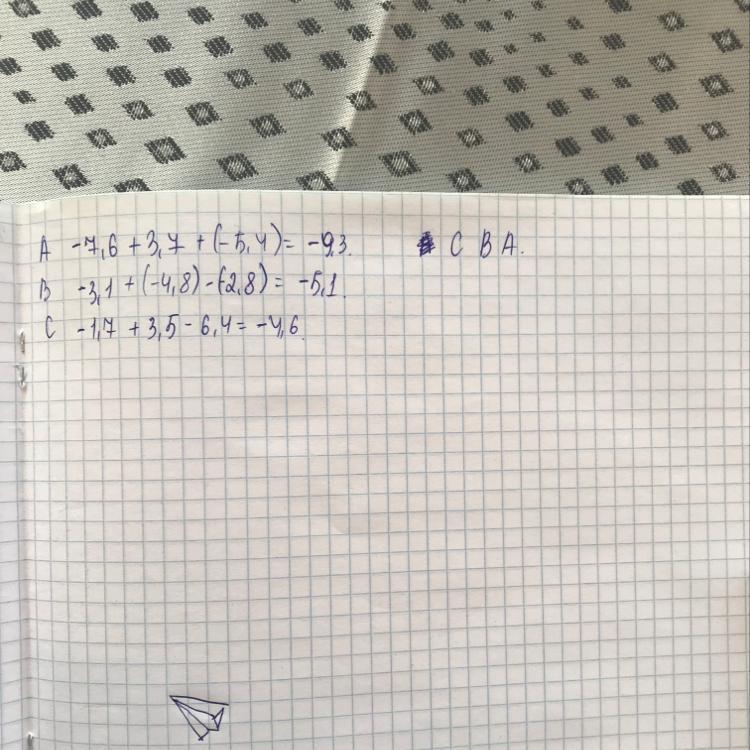 A -7,6 + 3,7 + (-5,4) = -9,3. C B A.
B -3,1 + (-4,8) - (-2,8) = -5,1.
C -1,7 + 3,5 - 6,4 = -4,6.